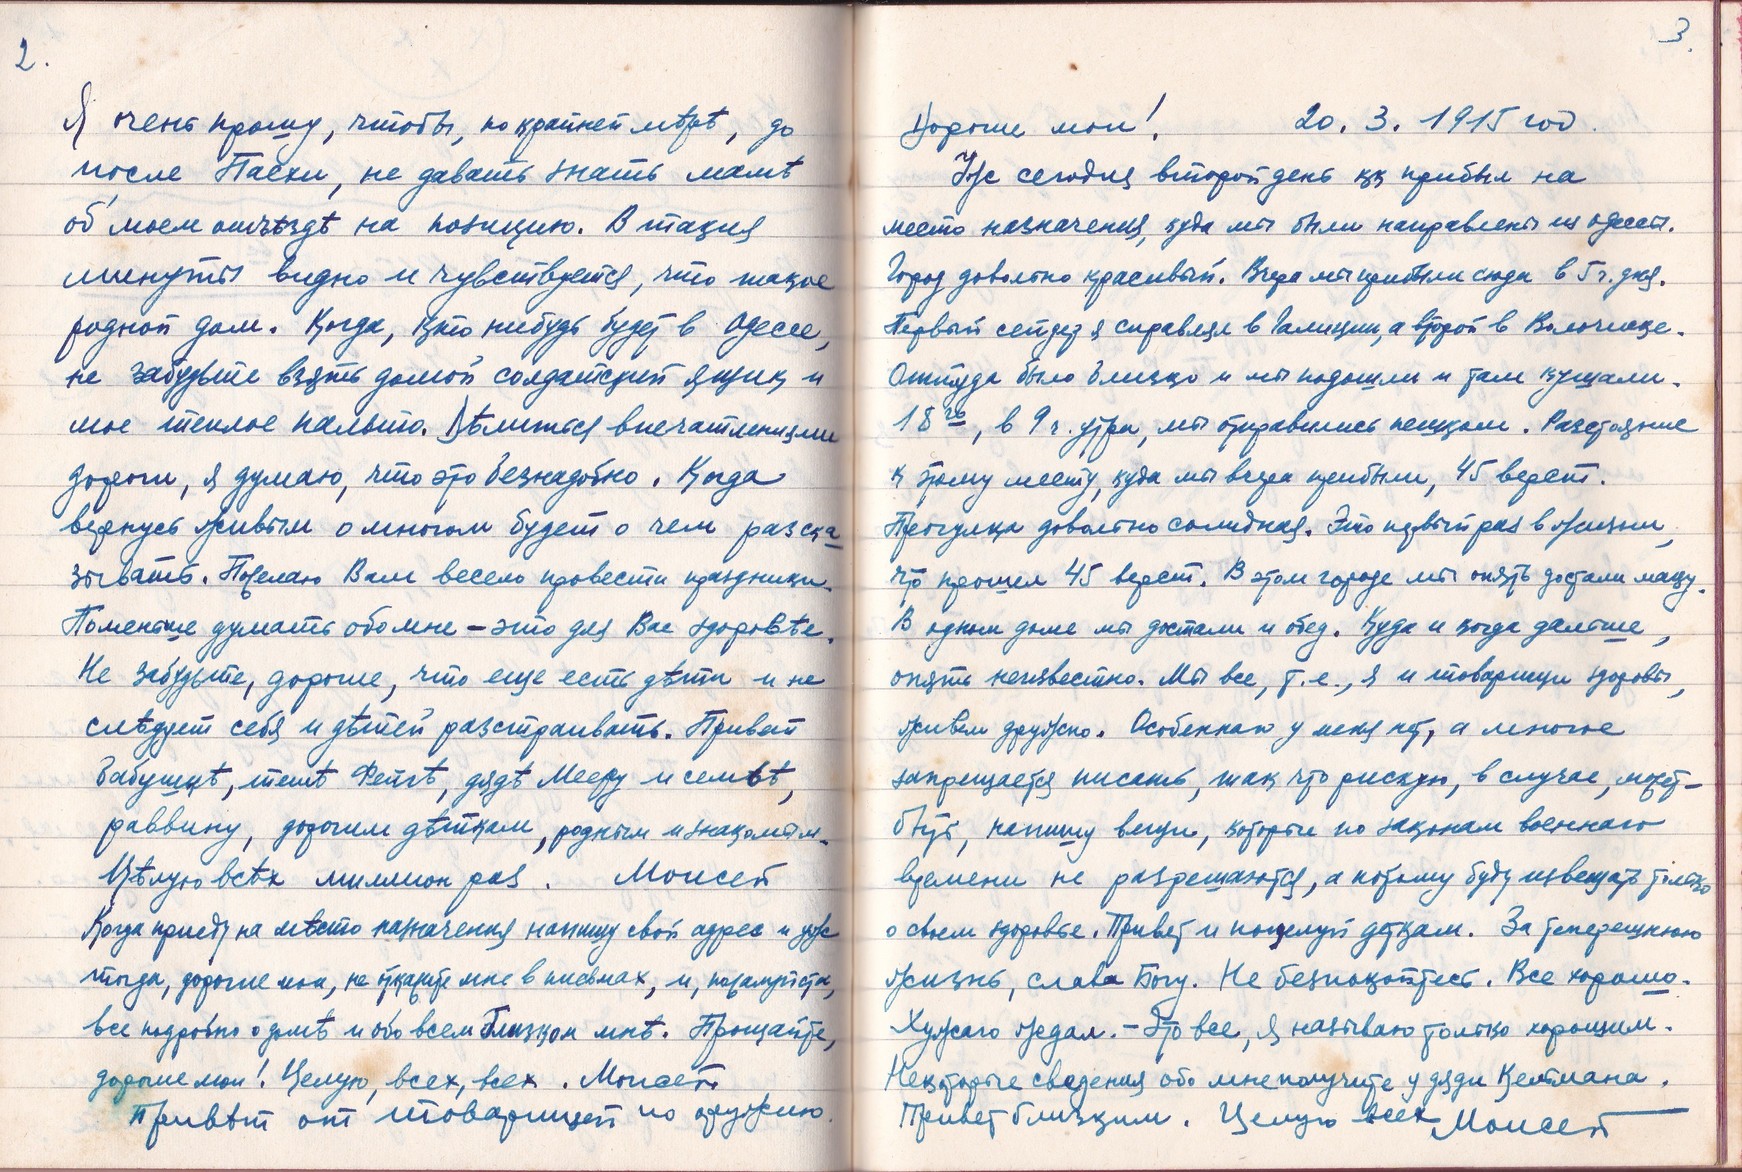 2.
Я очень прошу, чтобы, по крайней мѣрѣ, до
после Пасхи, не давать знать мамѣ
об моем отъѣздѣ на позицию. В такия
минуты видно и чувствуется, что такое
родной дом. Когда, кто нибудь будет в Одессе,
не забудьте взять домой солдатский ящик и
мое теплое пальто. Дѣлиться впечатлениями
дороги, я думаю, что это безнадобно. Когда
вернусь живым о многом будет о чем разска
зывать. Пожелаю Вам весело провести праздники.
Поменьше думать обо мне – это для Вас здоровѣе.
Не забудьте, дорогие, что еще есть дѣти и не
слѣдует себя и дѣтей разстраивать. Привет
бабушцѣ, тетѣ Фейгѣ, дядѣ Мееру и семьѣ,
раввину, дорогим дѣткам, родным и знакомым.
Цѣлую всѣх миллион раз. Моисей
Когда приеду на мѣсто назначения напишу свой адрес и уже
тогда, дорогие мои, не откажите мне в письмах, и, пожалуйста,
все подробно о домѣ и обо всем близком мнѣ. Прощайте,
дорогие мои! Целую, всех, всех. Моисей
Привѣт от товарищей по оружию.
3.
Дорогие мои! 20. 3. 1915 год.
Уже сегодня второй день как прибыл на
место назначения, куда мы были направлены из Одессы.
Город довольно красивый. Вчера мы прибыли сюда в 5 ч. дня.
Первый сейдер я справлял в Галиции, а второй в Волочиске.
Оттуда было близко и мы подошли и там кушали.
18го, в 9 ч. утра, мы отправились пешком. Разстояние
к этому месту, куда мы вчера прибыли, 45 верст.
Прогулка довольно солидная. Это первый раз в жизни,
что прошел 45 верст. В этом городе мы опять достали мацу.
В одном доме мы достали и обед. Куда и когда дальше,
опять неизвестно. Мы все, т.е., я и товарищи здоровы,
живем дружно. Особенного у меня нет, а многое
запрещается писать, так что рискую, в случае, может-
быть, напишу вещи, которые по законам военного
времени не разрешаются, а потому буду извещать только
о своем здоровье. Привет и поцелуй деткам. За теперешнюю
жизнь, слава Богу. Не безпокойтесь. Все хорошо.
Худшаго ждал. – Это все, я называю только хорошим.
Некоторые сведения обо мне получите у дяди Кельмана.
Привет близким. Целую всех Моисей